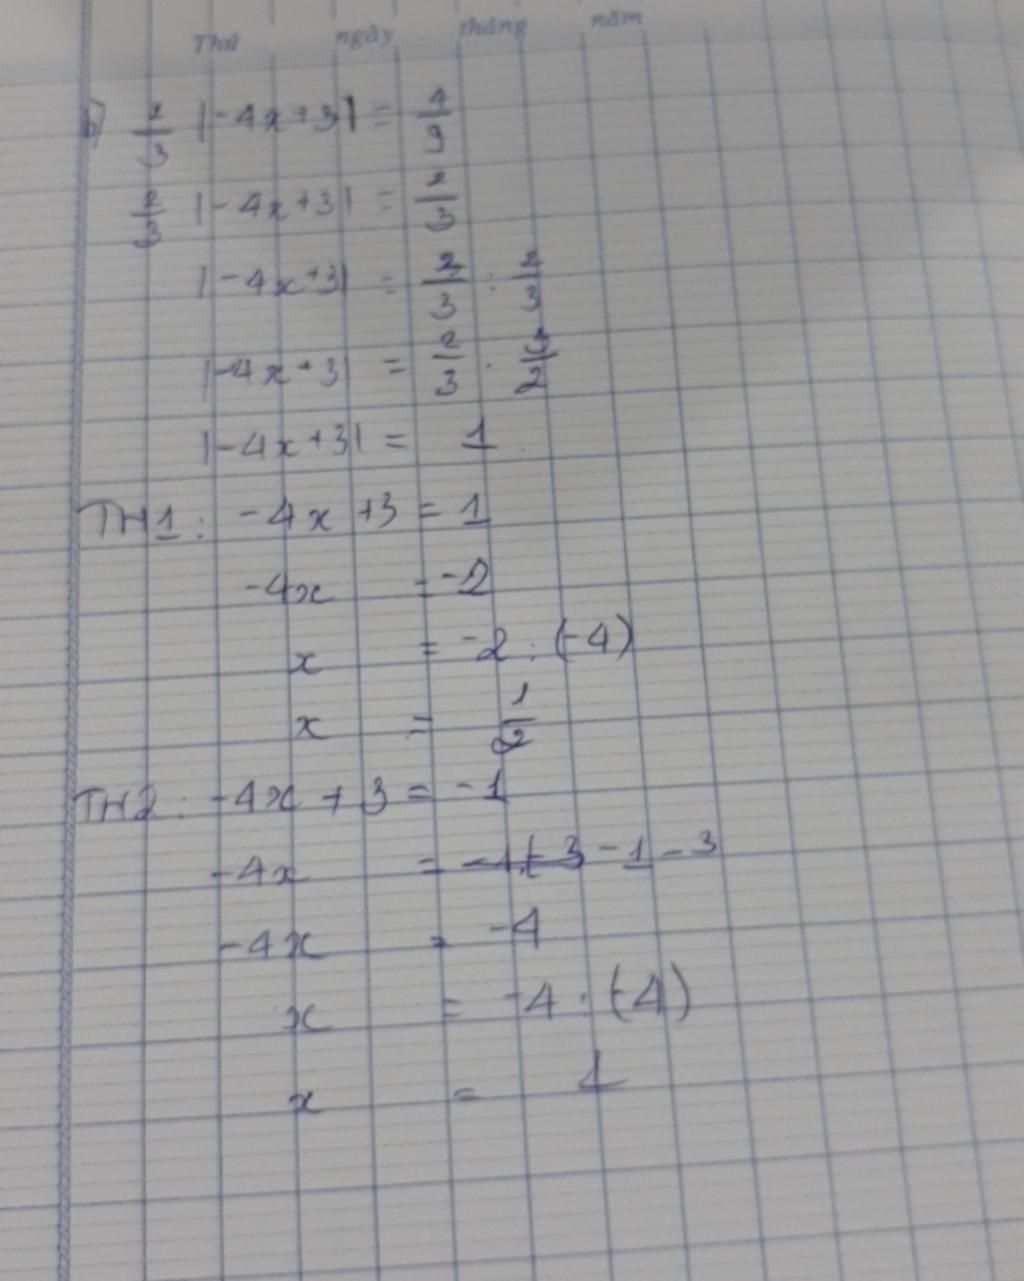 Thứ ngày tháng năm
b) 2/3 |-4x+3| = 4/9
2/3 |-4x+3| = 2/3
|-4x+3| = 2/3 : 2/3
|-4x+3| = 2/3 . 3/2
|-4x+3| = 1
TH1: -4x+3 = 1
-4x = -2
x = -2 : (-4)
x = 1/2
TH2: -4x + 3 = -1
-4x = -1-3
-4x = -4
x = -4 : (-4)
x = 1